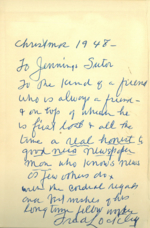 Christmas 1948 -
To Jennings Sutor
To the kind of a friend
who is always a friend -
& on top of when he
is first last & all the
time a real honest to
good news newspaper
man who knows news
as few others do &
with the cordial regards
and best wishes of his
long time fellow
Fred Lockley